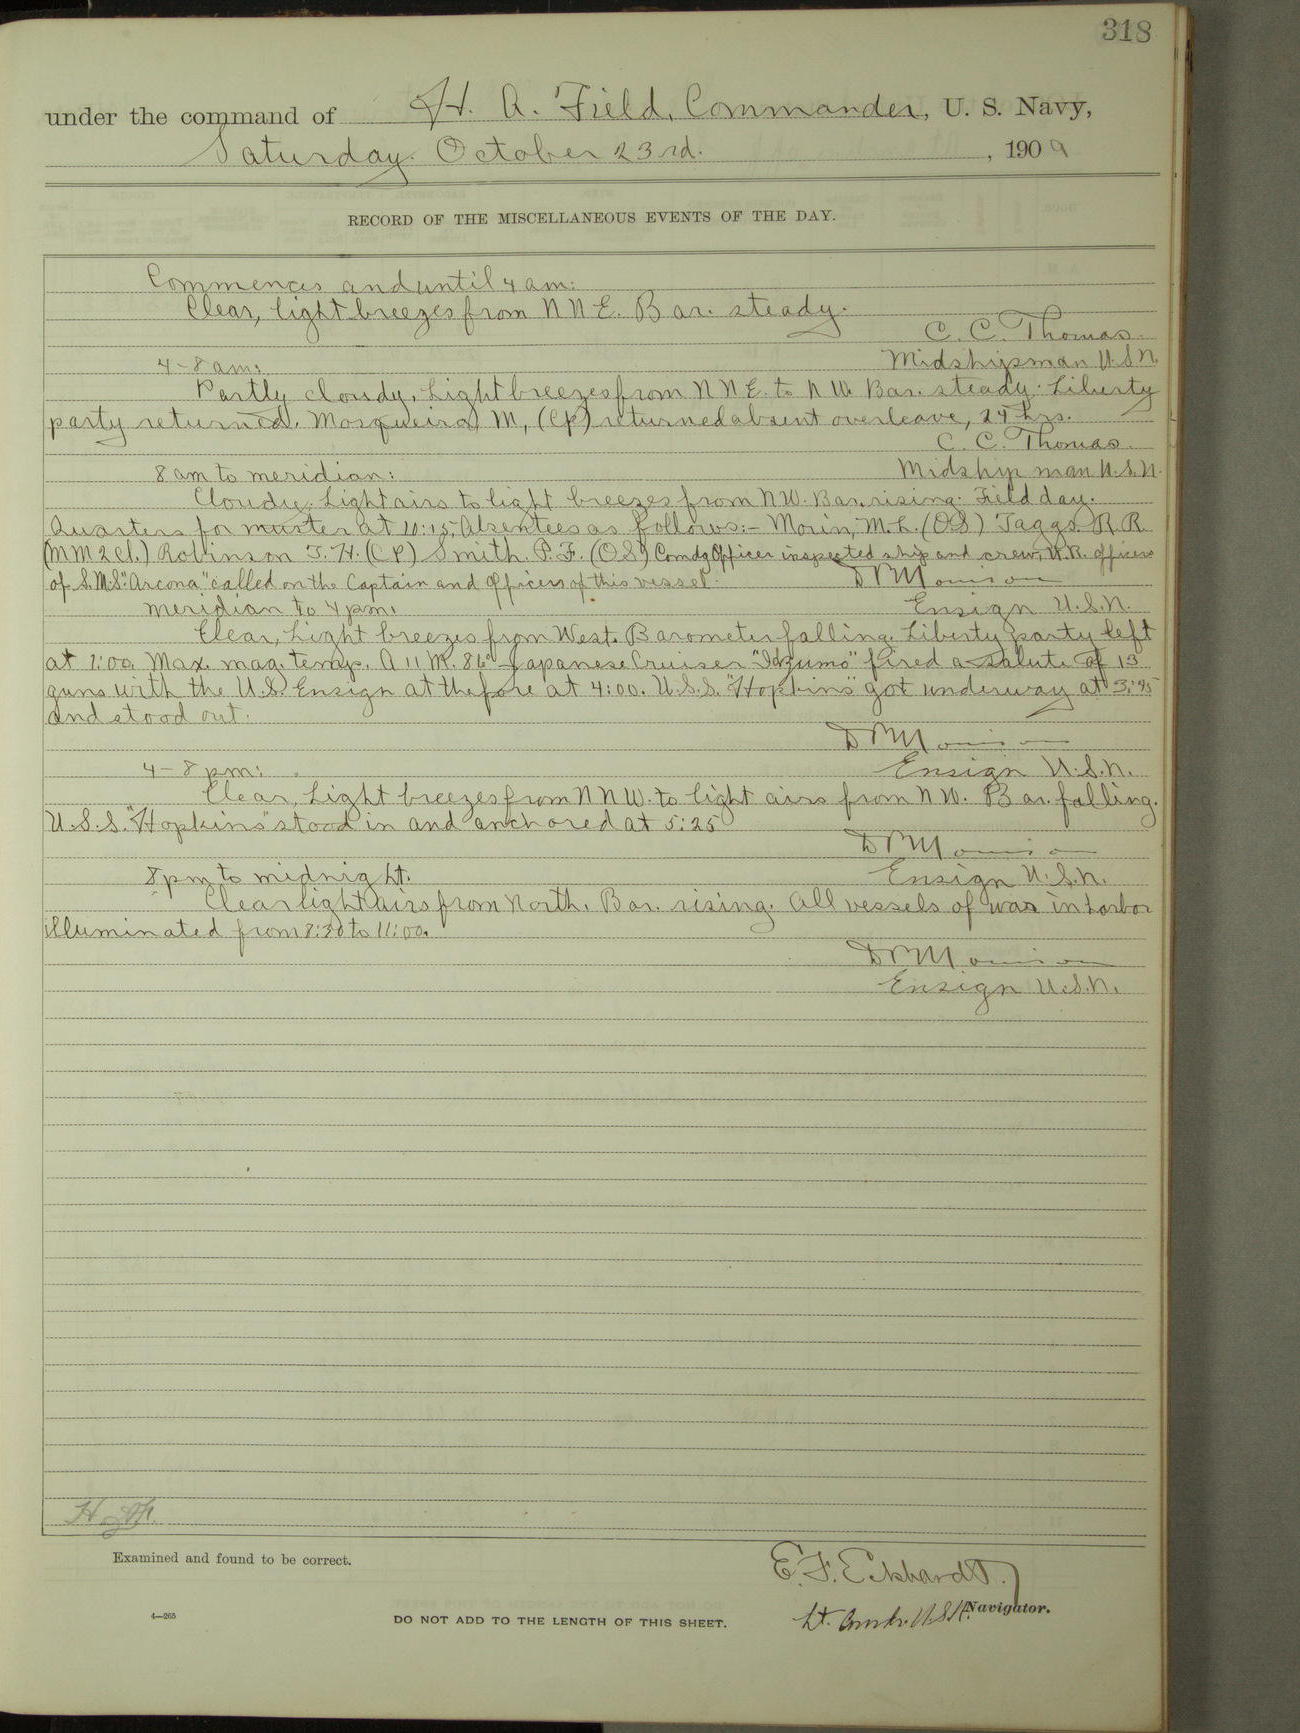 318
under the command of H. A. Field, Commander, U. S. Navy,
Saturday. October 23rd. , 1909
RECORD OF THE MISCELLANEOUS EVENTS OF THE DAY.
Commences and until 4 am:
Clear, light breezes from N N E. Bar. steady.
C. C. Thomas
Midshipman U.S.N.
4-8 am:
Partly cloudy, Light breezes from N N E. to N W. Bar. steady. Liberty
party returned. Mosqueira, M, (CP) returned absent over leave, 24 hrs.
C. C. Thomas.
Midshipman U.S.N.
8 am to meridian:
Cloudy. Light airs to light breezes from N W. Bar. rising. Field day.
Quarters for muster at 10:15, Absentees as follows:- Morin, M. L. (OS) Taggs. R R
(M M 2 Cl.) Robinson T. H. (CP) Smith. P. F. (OS) Comdg Officer inspected ship and crew, W.R. officers
of S.M.S. "Arcona" called on the Captain and Officers of this vessel.
Ensign U.S.N.
Meridian to 4 pm.
Clear, Light breezes from West. Barometer falling. Liberty party left
at 1:00. Max. mag. temp. A 11 M. 86° Japanese Cruiser "Idzumo" fired a salute of 13
guns with the U.S. Ensign at the fore at 4:00. U.S.S. "Hopkins" got underway at 3:45
and stood out.
Ensign U.S.N.
4-8 pm:
Clear, Light breezes from N N W. to light airs from N W. Bar. falling.
U.S.S. "Hopkins" stood in and anchored at 5:25
Ensign U.S.N.
8 pm to midnight.
Clear light airs from North. Bar. rising. All vessels of war in harbor
illuminated from 8:30 to 11:00.
Ensign U.S.N.
Examined and found to be correct.
E. F. Eckhardt.
Lt. Comdr. U.S.N. Navigator.
4—265
DO NOT ADD TO THE LENGTH OF THIS SHEET.